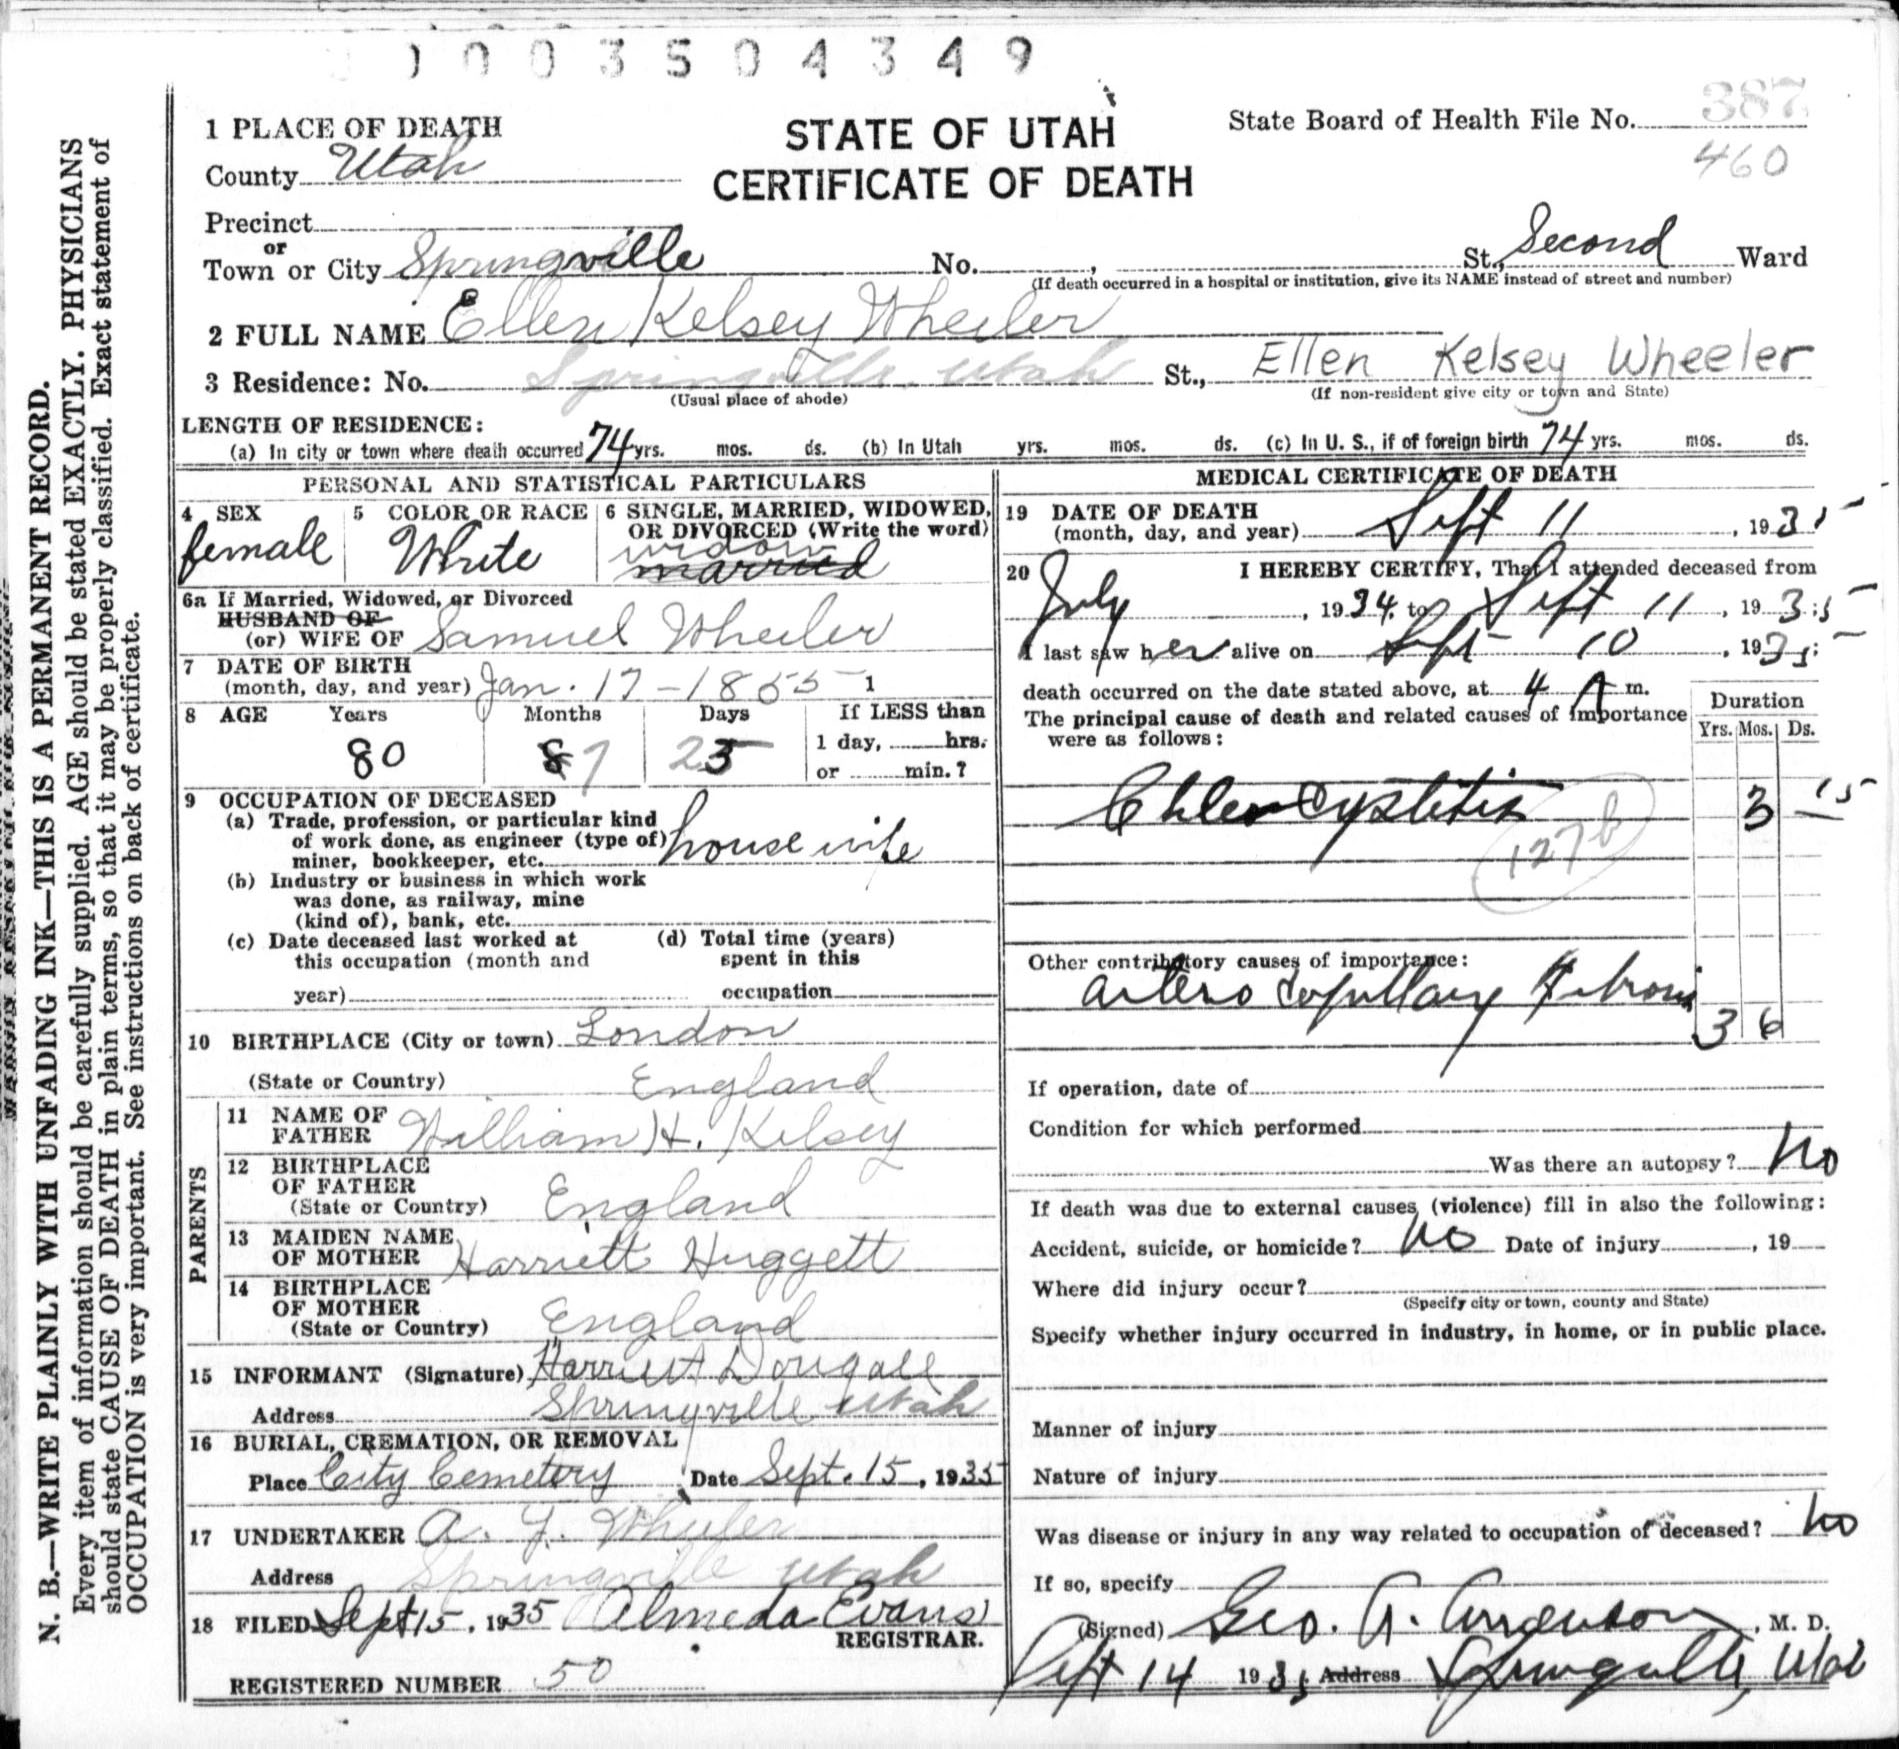 0003504349
N. B.—WRITE PLAINLY WITH UNFADING INK—THIS IS A PERMANENT RECORD.
Every item of information should be carefully supplied. AGE should be stated EXACTLY. PHYSICIANS
should state CAUSE OF DEATH in plain terms, so that it may be properly classified. Exact statement of
OCCUPATION is very important. See instructions on back of certificate.
STATE OF UTAH
CERTIFICATE OF DEATH
State Board of Health File No. 387
460
1 PLACE OF DEATH
County Utah
Precinct
or
Town or City Springville No. , St., Second Ward
(If death occurred in a hospital or institution, give its NAME instead of street and number)
2 FULL NAME Ellen Kelsey Wheeler
3 Residence: No. Springville, Utah St., Ellen Kelsey Wheeler
(Usual place of abode) (If non-resident give city or town and State)
LENGTH OF RESIDENCE:
(a) In city or town where death occurred 74 yrs. mos. ds. (b) In Utah yrs. mos. ds. (c) In U. S., if of foreign birth 74 yrs. mos. ds.
PERSONAL AND STATISTICAL PARTICULARS
4 SEX
female
5 COLOR OR RACE
White
6 SINGLE, MARRIED, WIDOWED,
OR DIVORCED (Write the word)
widow
married
6a If Married, Widowed, or Divorced
HUSBAND OF
(or) WIFE OF Samuel Wheeler
7 DATE OF BIRTH
(month, day, and year) Jan. 17 - 1855 1
8 AGE Years Months Days If LESS than
80 8 7 25 1 day, hrs.
or min.?
9 OCCUPATION OF DECEASED
(a) Trade, profession, or particular kind
of work done, as engineer (type of)
miner, bookkeeper, etc. house wife
(b) Industry or business in which work
was done, as railway, mine
(kind of), bank, etc.
(c) Date deceased last worked at
this occupation (month and
year)
(d) Total time (years)
spent in this
occupation
10 BIRTHPLACE (City or town) London
(State or Country) England
PARENTS
11 NAME OF
FATHER William H. Kelsey
12 BIRTHPLACE
OF FATHER
(State or Country) England
13 MAIDEN NAME
OF MOTHER Harriett Huggett
14 BIRTHPLACE
OF MOTHER
(State or Country) England
15 INFORMANT (Signature) Harriett Dougall
Address Springville Utah
16 BURIAL, CREMATION, OR REMOVAL
Place City Cemetery Date Sept. 15, 1935
17 UNDERTAKER A. Y. Wheeler
Address Springville Utah
18 FILED Sept 15, 1935 Almeda Evans
REGISTRAR.
REGISTERED NUMBER 50
MEDICAL CERTIFICATE OF DEATH
19 DATE OF DEATH
(month, day, and year) Sept 11, 1935
20 I HEREBY CERTIFY, That I attended deceased from
July, 1934 to Sept 11, 1935
I last saw her alive on Sept 10, 1935;
death occurred on the date stated above, at 4 A m.
The principal cause of death and related causes of importance
were as follows:
Duration
Yrs. Mos. Ds.
Cholecystitis 3 15
127b
Other contributory causes of importance:
Artero Capillary Fibrosis
3 6
If operation, date of
Condition for which performed
Was there an autopsy? No
If death was due to external causes (violence) fill in also the following:
Accident, suicide, or homicide? No Date of injury , 19
Where did injury occur?
(Specify city or town, county and State)
Specify whether injury occurred in industry, in home, or in public place.
Manner of injury
Nature of injury
Was disease or injury in any way related to occupation of deceased? No
If so, specify
(Signed) Geo. A. Anderson, M. D.
Sept 14 1935 Address Springville, Utah